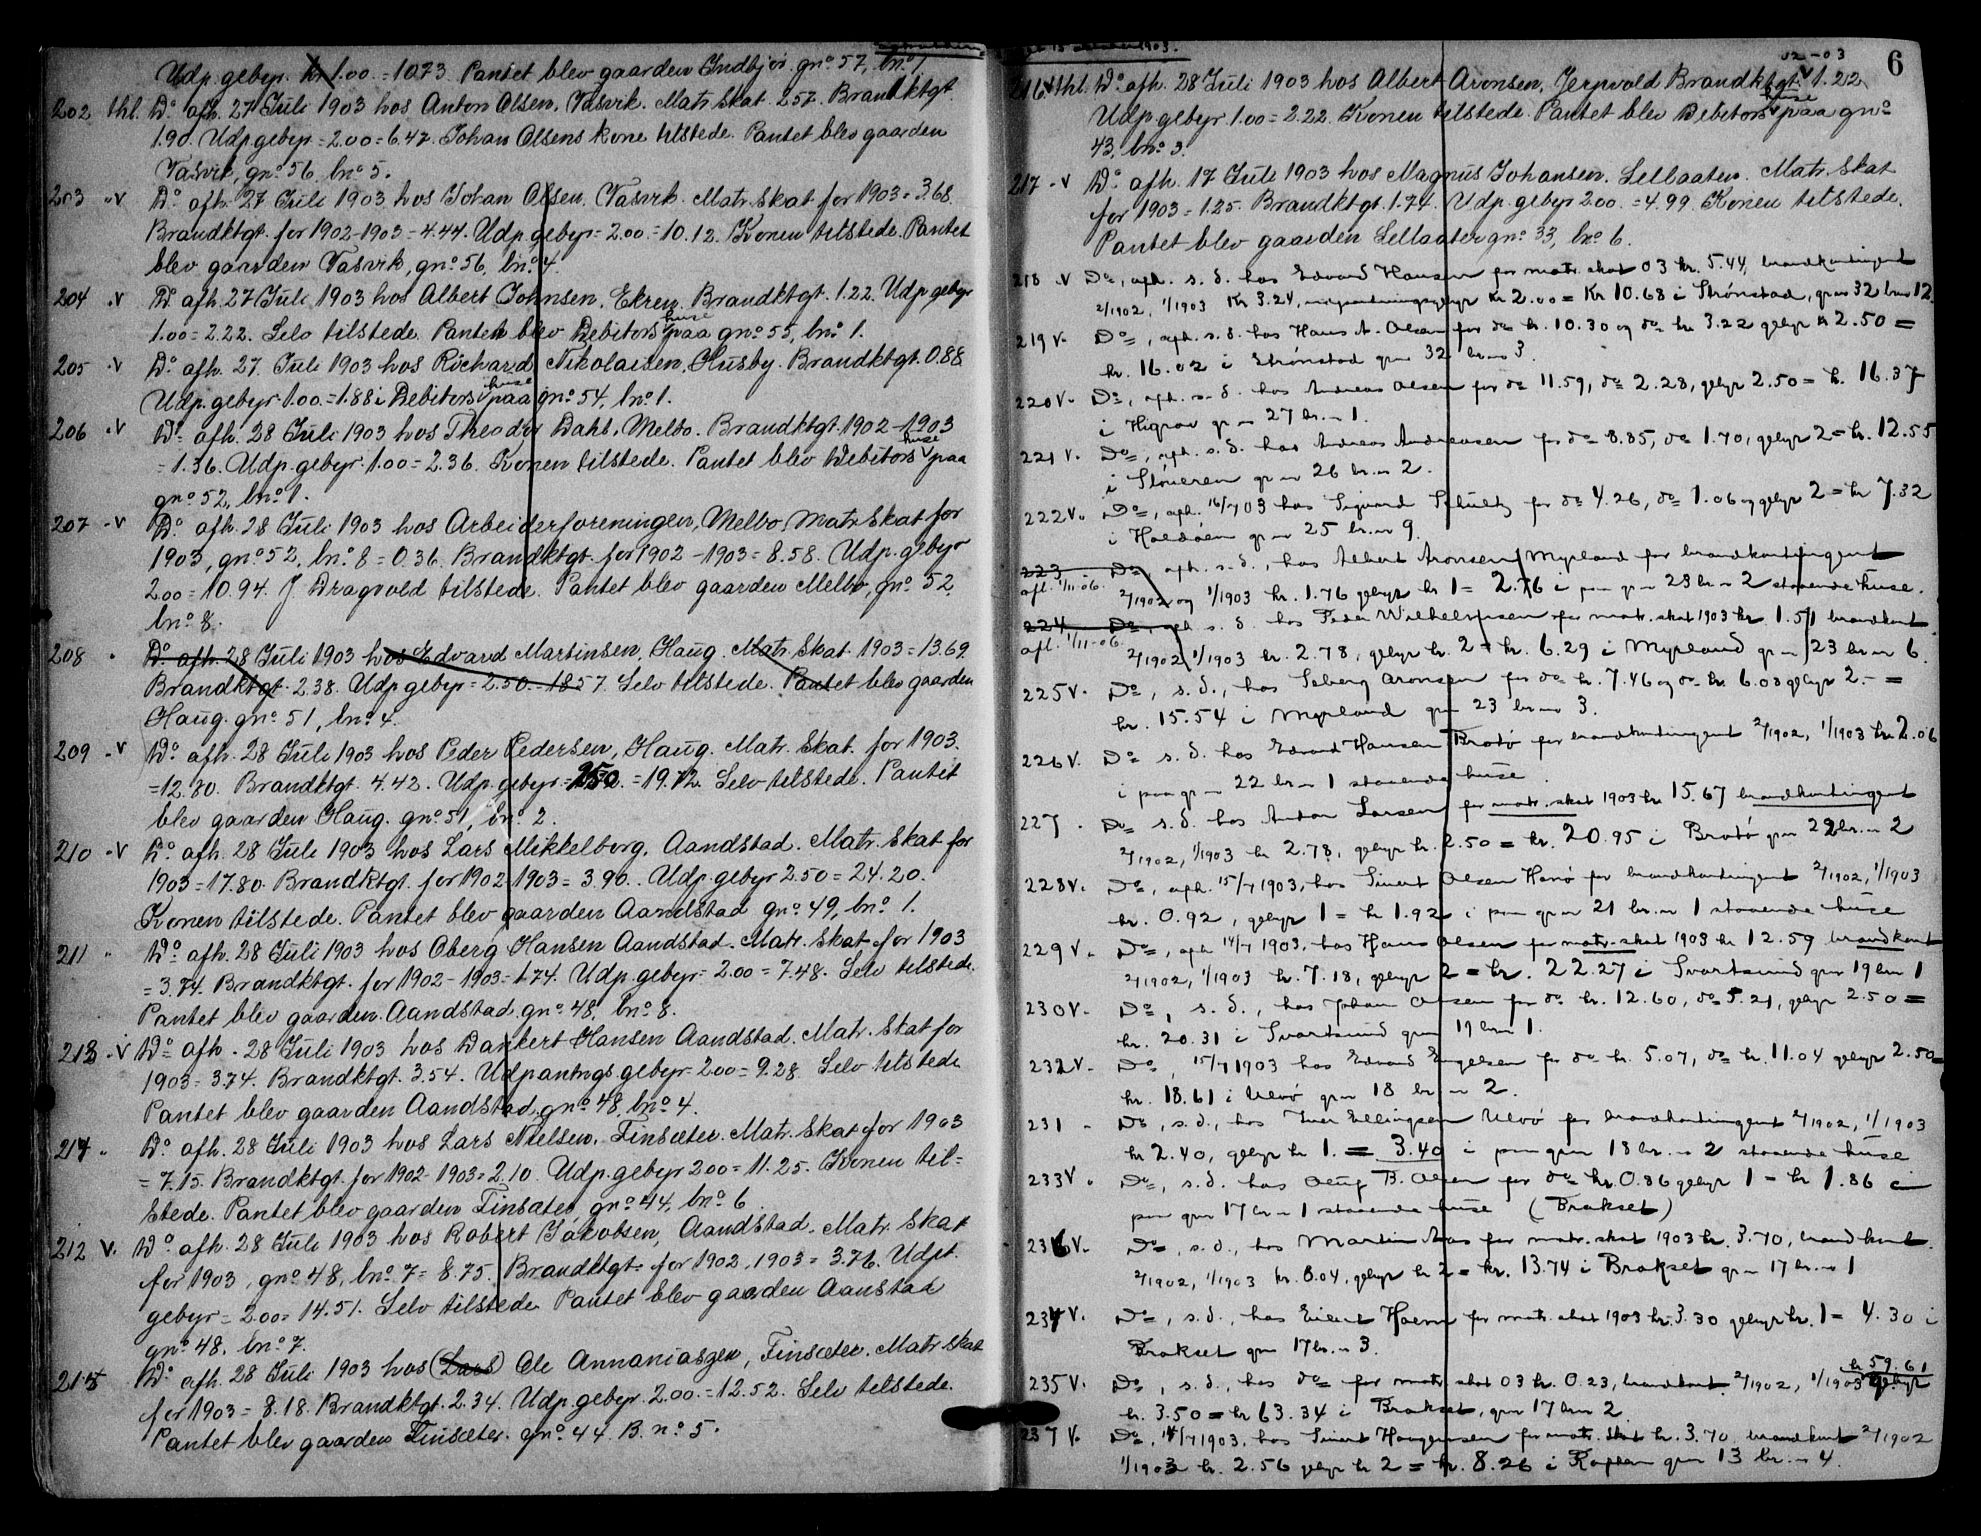 Udp. gebyr. kr 1.00. = 10.73. Pantet blev gaarden Indbjor. gno. 57, bno. 1
202 thl. Do. afh. 27 Juli 1903 hos Anton Olsen, Vasvik. Matr. Skat. 2.57. Brandktgt.
1.90. Udp. gebyr = 2.00 = 6.47. Johan Olsens kone tilstede. Pantet blev gaarden
Vasvik, gno. 56, bno. 5.
203 " v Do. afh. 27 Juli 1903 hos Johan Olsen, Vasvik. Matr. Skat for 1903 = 3.68.
Brandktgt. for 1902-1903 = 4.44. Udp. gebyr = 2.00. = 10.12. Konen tilstede. Pantet
blev gaarden Vasvik, gno. 56, bno. 4.
204 " v Do. afh. 27 Juli 1903 hos Albert Johnsen, Ekren. Brandktgt. 1.22. Udp. gebyr
1.00 = 2.22. Selv tilstede. Pantet blev Debitors huse paa gno. 55, bno. 1.
205 " v Do. afh. 27. Juli 1903 hos Richard Nikolaisen, Husby. Brandktgt. 0.88
Udp. gebyr. 1.00. = 1.88 i Debitors huse paa gno. 54, bno. 1.
206 " v Do. afh. 28 Juli 1903 hos Theodor Dahl, Melbo. Brandktgt. 1902-1903
= 1.36. Udp. gebyr. 1.00 = 2.36. Konen tilstede. Pantet blev Debitors huse paa
gno. 52, bno. 1.
207 " v Do. afh. 28 Juli 1903 hos Arbeiderforeningen, Melbo, Matr. Skat for
1903, gno. 52, bno. 8 = 0.36. Brandktgt. for 1902-1903 = 8.58. Udp. gebyr
2.00 = 10.94. J Dragvold tilstede. Pantet blev gaarden Melbo, gno. 52,
bno. 8.
208 " Do. afh. 28 Juli 1903 hos Edvard Martinsen, Haug. Matr. Skat. 1903 = 13.69
Brandktgt. 2.38. Udp. gebyr = 2.50. = 18.57. Selv tilstede. Pantet blev gaarden
Haug. gno. 51, bno. 4.
209 " v Do. afh. 28 Juli 1903 hos Peder Pedersen, Haug. Matr. Skat. for 1903.
= 12.80. Brandktgt. 4.42. Udp. gebyr = 2.50. = 19.72. Selv tilstede. Pantet
blev gaarden Haug. gno. 51, bno. 2.
210 " v Do. afh. 28 Juli 1903 hos Lars Mikkelborg, Aandstad. Matr. Skat for
1903 = 17.80. Brandktgt. for 1902-1903 = 3.90. Udp. gebyr 2.50 = 24.20.
Konen tilstede. Pantet blev gaarden Aandstad gno. 49, bno. 1.
211 " Do. afh. 28 Juli 1903 hos Oberg Hansen Aandstad. Matr. Skat for 1903
= 3.74. Brandktgt. for 1902-1903 = 1.74. Udp. gebyr = 2.00 = 7.48. Selv tilstede.
Pantet blev gaarden Aandstad, gno. 48, bno. 8.
213 " v Do. afh. 28 Juli 1903 hos Dankert Hansen Aandstad. Matr. Skat for
1903 = 3.74. Brandktgt. 3.54. Udpantngs gebyr = 2.00 = 9.28. Selv tilstede
Pantet blev gaarden Aandstad, gno. 48, bno. 4.
214 " Do. afh. 28 Juli 1903 hos Lars Nielsen, Finsæter. Matr. Skat for 1903
= 7.15. Brandktgt. for 1902-1903 = 2.10. Udp. gebyr 2.00 = 11.25. Konen til=
stede. Pantet blev gaarden Finsæter, gno. 44, bno. 6
212 v. Do. afh. 28 Juli 1903 hos Robert Jakobsen, Aandstad. Matr. Skat
for 1903, gno. 48, bno. 7 = 8.75. Brandktgt. for 1902, 1903 = 3.76. Udpt.
gebyr = 2.00 = 14.51. Selv tilstede. Pantet blev gaarden Aanstad
gno. 48, bno. 7.
215 Do. afh. 28 Juli 1903 hos (Lars) Ole Annaniaszen, Finsæter. Matr. Skat
for 1903 = 8.18. Brandktgt. 2.34. Udp. gebyr. 2.00. = 12.52. Selv tilstede.
Pantet blev gaarden Finsæter. gno. 44. B. no. 5.
15 oktober 1903.
02-03
6
216 v thl. Do. afh. 28 Juli 1903 hos Albert Aronsen, Jerpvold Brandktgt. 1.22
Udp. gebyr 1.00 = 2.22. Konen tilstede. Pantet blev Debitors huse paa gno.
43, bno. 3.
217 " v Do. afh. 17 Juli 1903 hos Magnus Johansen. Sellaater. Matr. Skat
for 1903 = 1.25. Brandktgt. 1.74. Udp. gebyr 2.00. = 4.99. Konen tilstede.
Pantet blev gaarden Sellaater gno. 33, bno. 6.
218 " v Do, afh. s. d. hos Edvard Hansen for matr. skat 03 kr. 5.44, brandkontingent
2/1902, 1/1903 kr 3.24, udpantningsgebyr kr 2.00 = kr 10.68 i Strønstad, gr no 32 br no 12.
219 v. Do, afh. s. d. hos Hans A. Olsen for do kr. 10.30 og do kr 3.22 gebyr kr 2.50 =
kr. 16.02 i Strønstad gr no 32 br no 3.
220 v. Do, afh. s. d. hos Andreas Olsen for do 11.59, do 2.28, gebyr 2.50 = kr. 16.37
i Higrav gr no 27 br. no 1.
221 v. Do, afh. s. d. hos Andreas Andreassen for do 8.85, do 1.70, gebyr 2 = kr. 12.55
i gr no 26 br no 2.
222 v. Do, afh. 16/7 03 hos Sigvard Schultz for do 4.26, do 1.06 og gebyr 2 = kr 7.32
i Holdøen gr no 25 br. no 9.
223 Do, afh. s. d., hos Albert Aronsen Myrland for brandkontingent
afl. 1/11-06. 2/1902 og 1/1903 kr. 1.76 gebyr kr 1 = 2.76 i paa gr no 23 br no 2 staaende huse.
224 Do, afh s. d. hos Peder Wilhelmsen for matr. skat 1903 kr. 1.51 brandkont.
afl. 1/11-06. 2/1902 1/1903 kr. 2.78, gebyr kr. 2 = kr. 6.29 i Myrland gr no 23 br no 6.
225 v. Do, s. d., hos Seberg Aronsen for do kr. 7.46 og do kr. 6.08 gebyr 2.- =
kr. 15.54 i Myrland gr no 23 br no 3.
226 v. Do s. d. hos Edvard Hansen Brotø for brandkontingent 2/1902, 1/1903 kr 2.06
i paa gr no 22 br no 1 staaende huse.
227 . Do s. d. hos Anton Larsen for matr. skat 1903 kr 15.67 brandkontingent
2/1902, 1/1903 kr 2.78, gebyr kr. 2.50 = kr. 20.95 i Brotø gr no 22 br. no 2
228 v. Do, afh. 15/7 1903, hos Sivert Olsen Hanø for brandkontingent 2/1902, 1/1903
kr. 0.92, gebyr 1 = kr 1.92 i paa gr no 21 br. no 1 staaende huse
229 v. Do, afh 14/7 1903, hos Hans Olsen for matr. skat 1903 kr 12.59 brandkont
2/1902, 1/1903 kr. 7.18, gebyr 2 = kr. 22.27 i Svartsund gr no 19 br no 1
230 v. Do, s. d., hos Johan Olsen for do kr. 12.60, do 5.21, gebyr 2.50 =
kr. 20.31 i Svartsund gr no 19 br no 1.
232 v. Do, 15/7 1903 hos Edvard Engelsen for do kr. 5.07, do kr. 11.04 gebyr 2.50 =
kr. 18.61 i Ulvø gr no 18 br no 2.
231 " Do, s. d., hos Iver Ellingsen Ulvø for brandkontingent 2/1902, 1/1903
kr 2.40, gebyr kr 1. = 3.40 i paa gr no 18 br. no 2 staaende huse
233 v . Do, s. d. hos Oluf B. Olsen for do kr. 0.86 gebyr 1 = kr 1.86 i
paa gr no 17 br no 1 staaende huse (Brakset)
236 v. Do, s. d., hos Martin Aas for matr. skat 1903 kr. 3.70, brandkont.
2/1902, 1/1903 kr. 8.04, gebyr kr 2 = kr. 13.74 i Brakset gr no 17 br. no 1
234 v. Do, s. d., hos Eilert Hoem for matr. skat 1903 kr. 3.30 gebyr kr. 1 = 4.30 i
Brakset gr no 17 br. no 3.
kr 59.61
235 v. Do, s. d., hos do for matr. skat 03 kr. 0.23, brandkont. 2/1902, 1/1903 gebyr
kr. 3.50 = kr 63.34 i Brakset, gr no 17 br no 2
237 v. Do, 14/7 1903, hos Sivert Haugensen for matr. skat kr. 3.70 brandkont 2/1902
1/1903 kr. 2.56 gebyr kr 2 = kr. 8.26 i gr no 13 br. no 4.